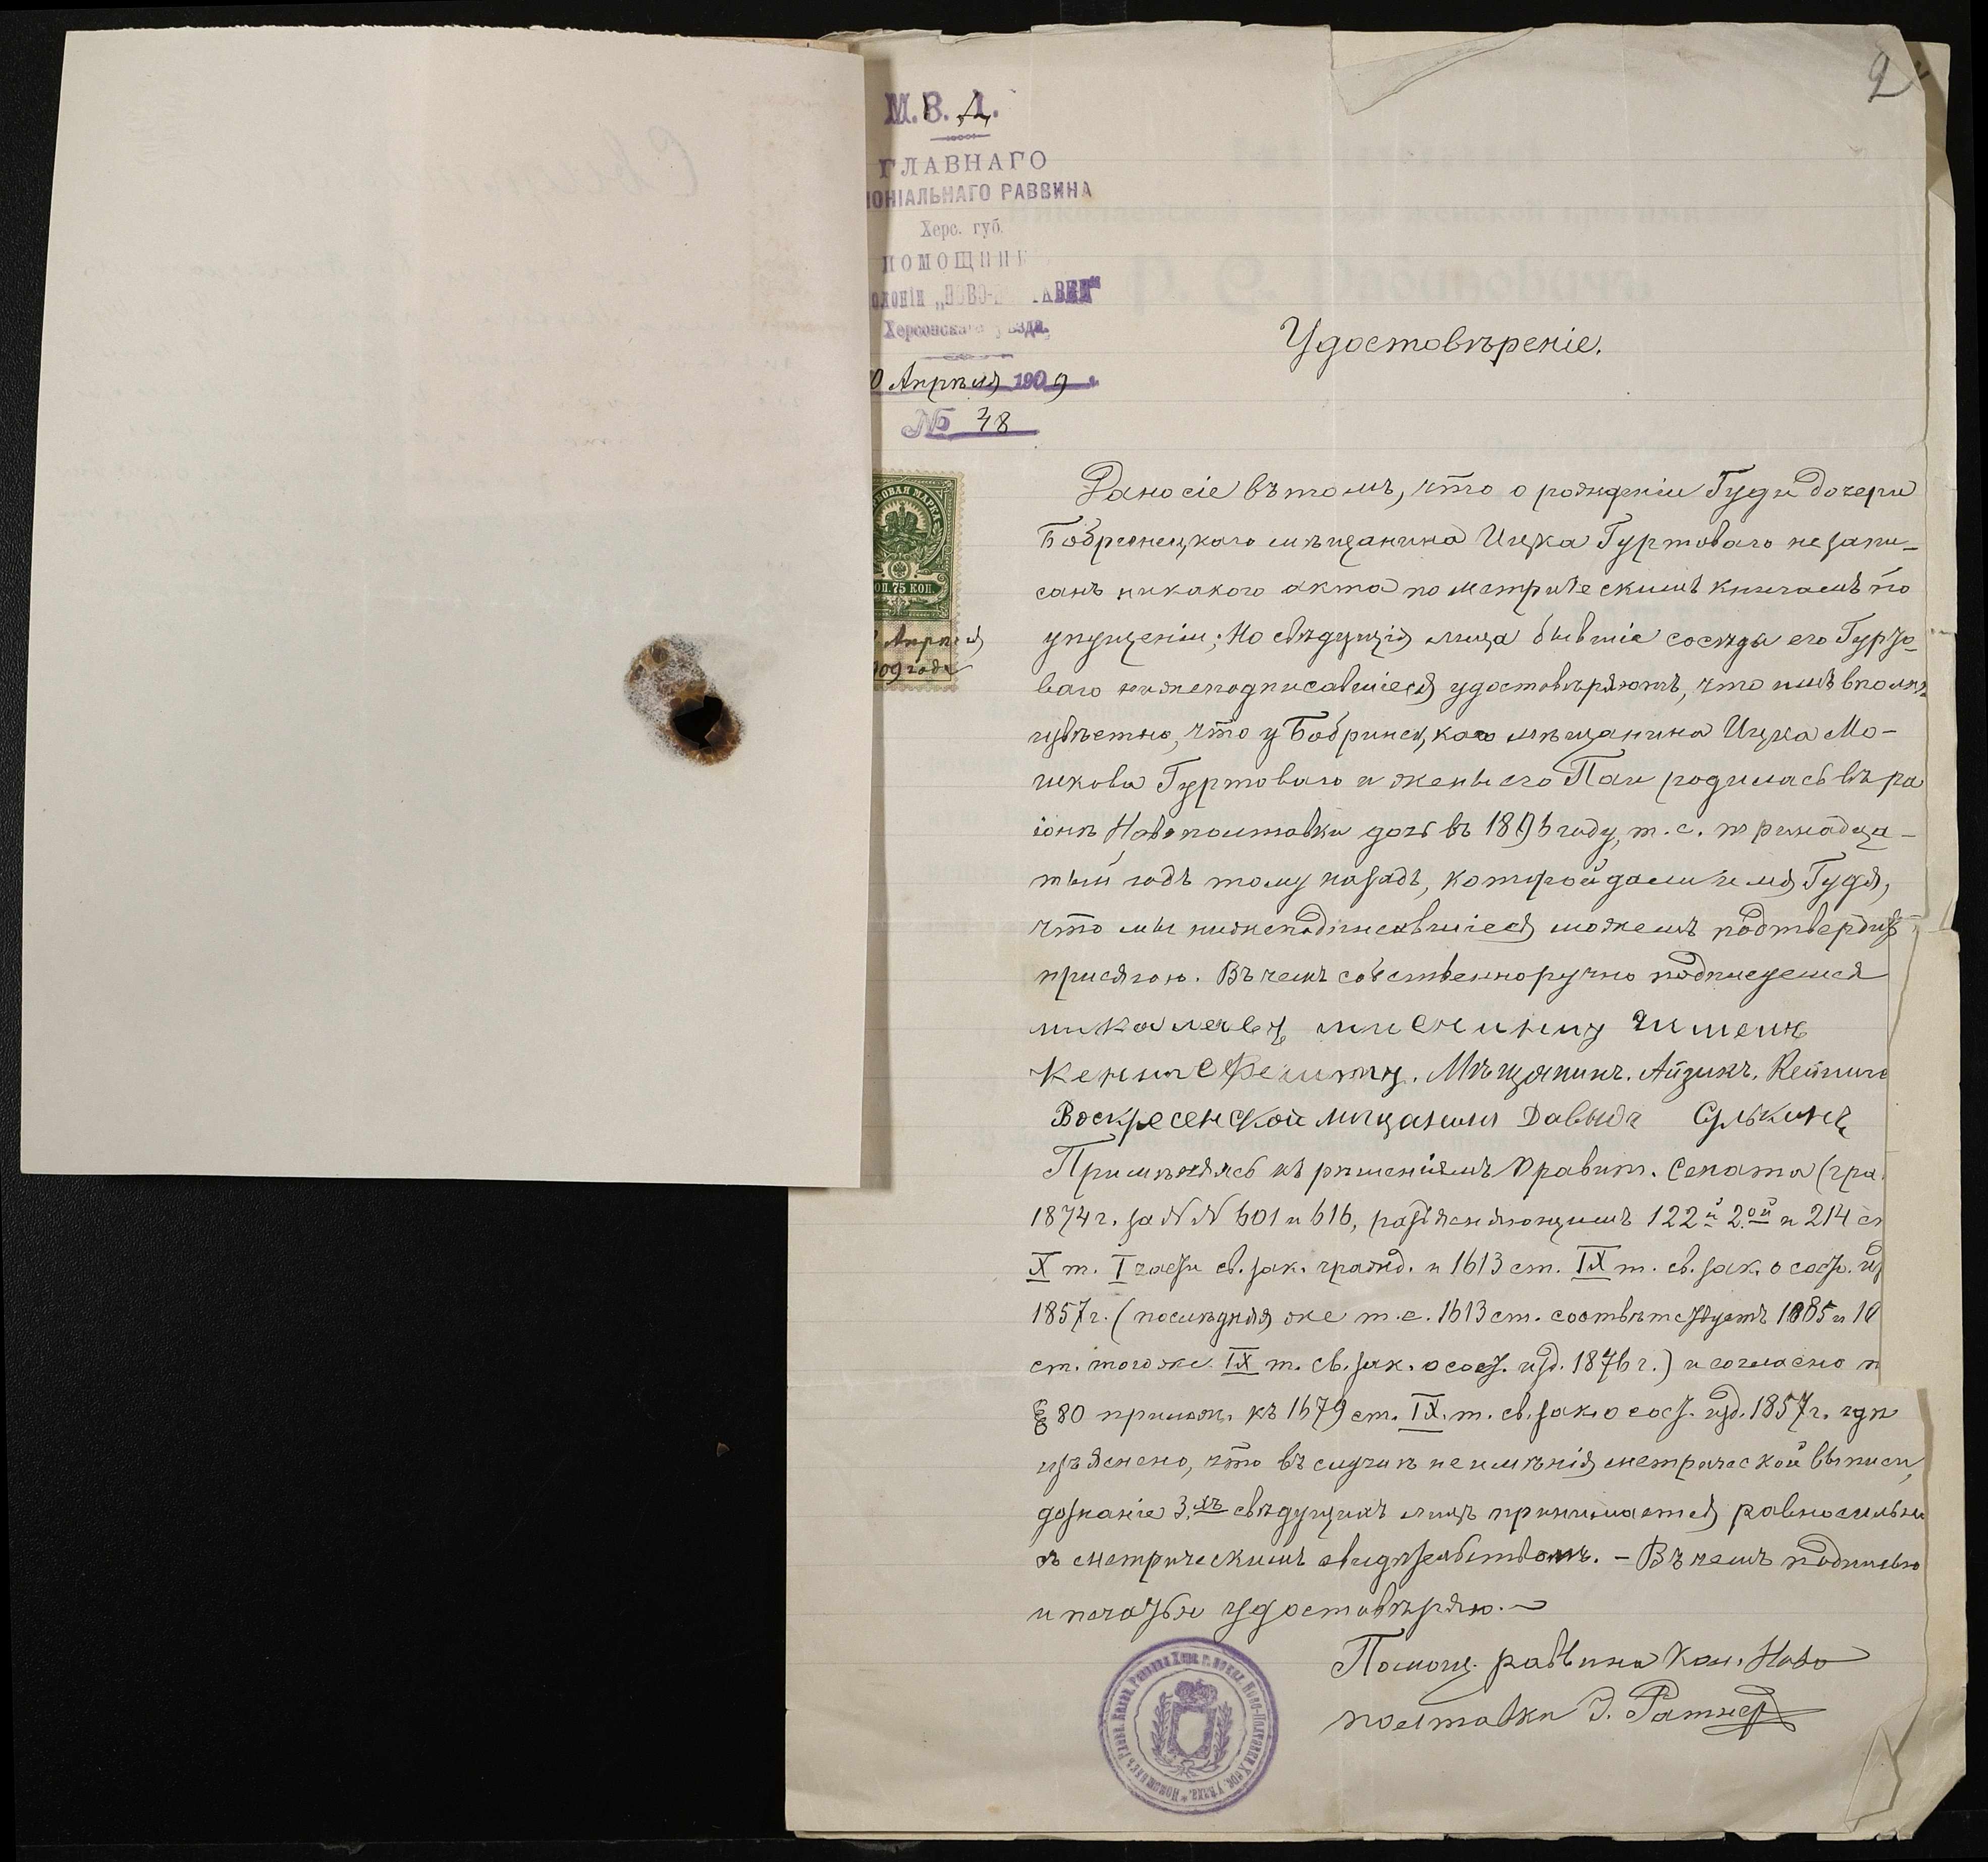 2
М. В. Д.
ГЛАВНАГО
ОНІАЛЬНАГО РАВВИНА
Херс. губ.
ПОМОЩНИК
олоніи „НОВО- ТАВКИ"
Херсонскаго уѣзда.
0 Апрѣля 1909 г.
№ 48
НОВАЯ МАРКА
ОП. 75 КОП.
Апрѣля
909 года
Удостовѣреніе.
Дано сіе въ томъ, что о рожденіи Гуди дочери
Бобринецкаго мѣщанина Ицка Гуртоваго не запи-
санъ никакого акта по метрическимъ книгамъ по
упущенію; Но свѣдущія лица бывшіе сосѣди его Гурто-
ваго нижеподписавшіеся удостовѣряютъ, что имъ вполнѣ
извѣстно, что у Бобринецкаго мѣщанина Ицка Мо-
шкова Гуртоваго и жены его Паи родилась въ ра
іонѣ Новополтавки дочь въ 1896 году, т. е. тринадца-
тый годъ тому назадъ, которой дали имя Гудя,
что мы нижеподписавшіеся можемъ подтвердить
присягою. Въ чемъ собственноручно подписуемся
Мѣщанинъ. Айзикъ.
Воскресенской мищанин Давыдъ Сулькинъ
Примѣняясь къ рѣшеніямъ Правит. Сената (гра
1874 г. за №№ 601 и 616, разъясняющимъ 122й 2.ой и 214 ст
X т. I части св. зак. гражд. и 1613 ст. IX т. св. зак. о сост. из
1857 г. (послѣдняя же т. е. 1613 ст. соотвѣтствуетъ 1085 и 10
ст. того же IX т. св. зак. о сост. изд. 1876 г.) и согласно п
§ 80 прилож. къ 1679 ст. IX. т. св. зак. о сост. изд. 1857 г. гдѣ
изъяснено, что въ случаѣ неимѣнія метрической выписи,
дознаніе 3.хъ свѣдущихъ лицъ принимается равносильны
съ метрическимъ свидѣтельствомъ. - Въ чемъ подписью
и печатью удостовѣряю. -
Помощ. раввина кол. Ново
полтавки Ратнер